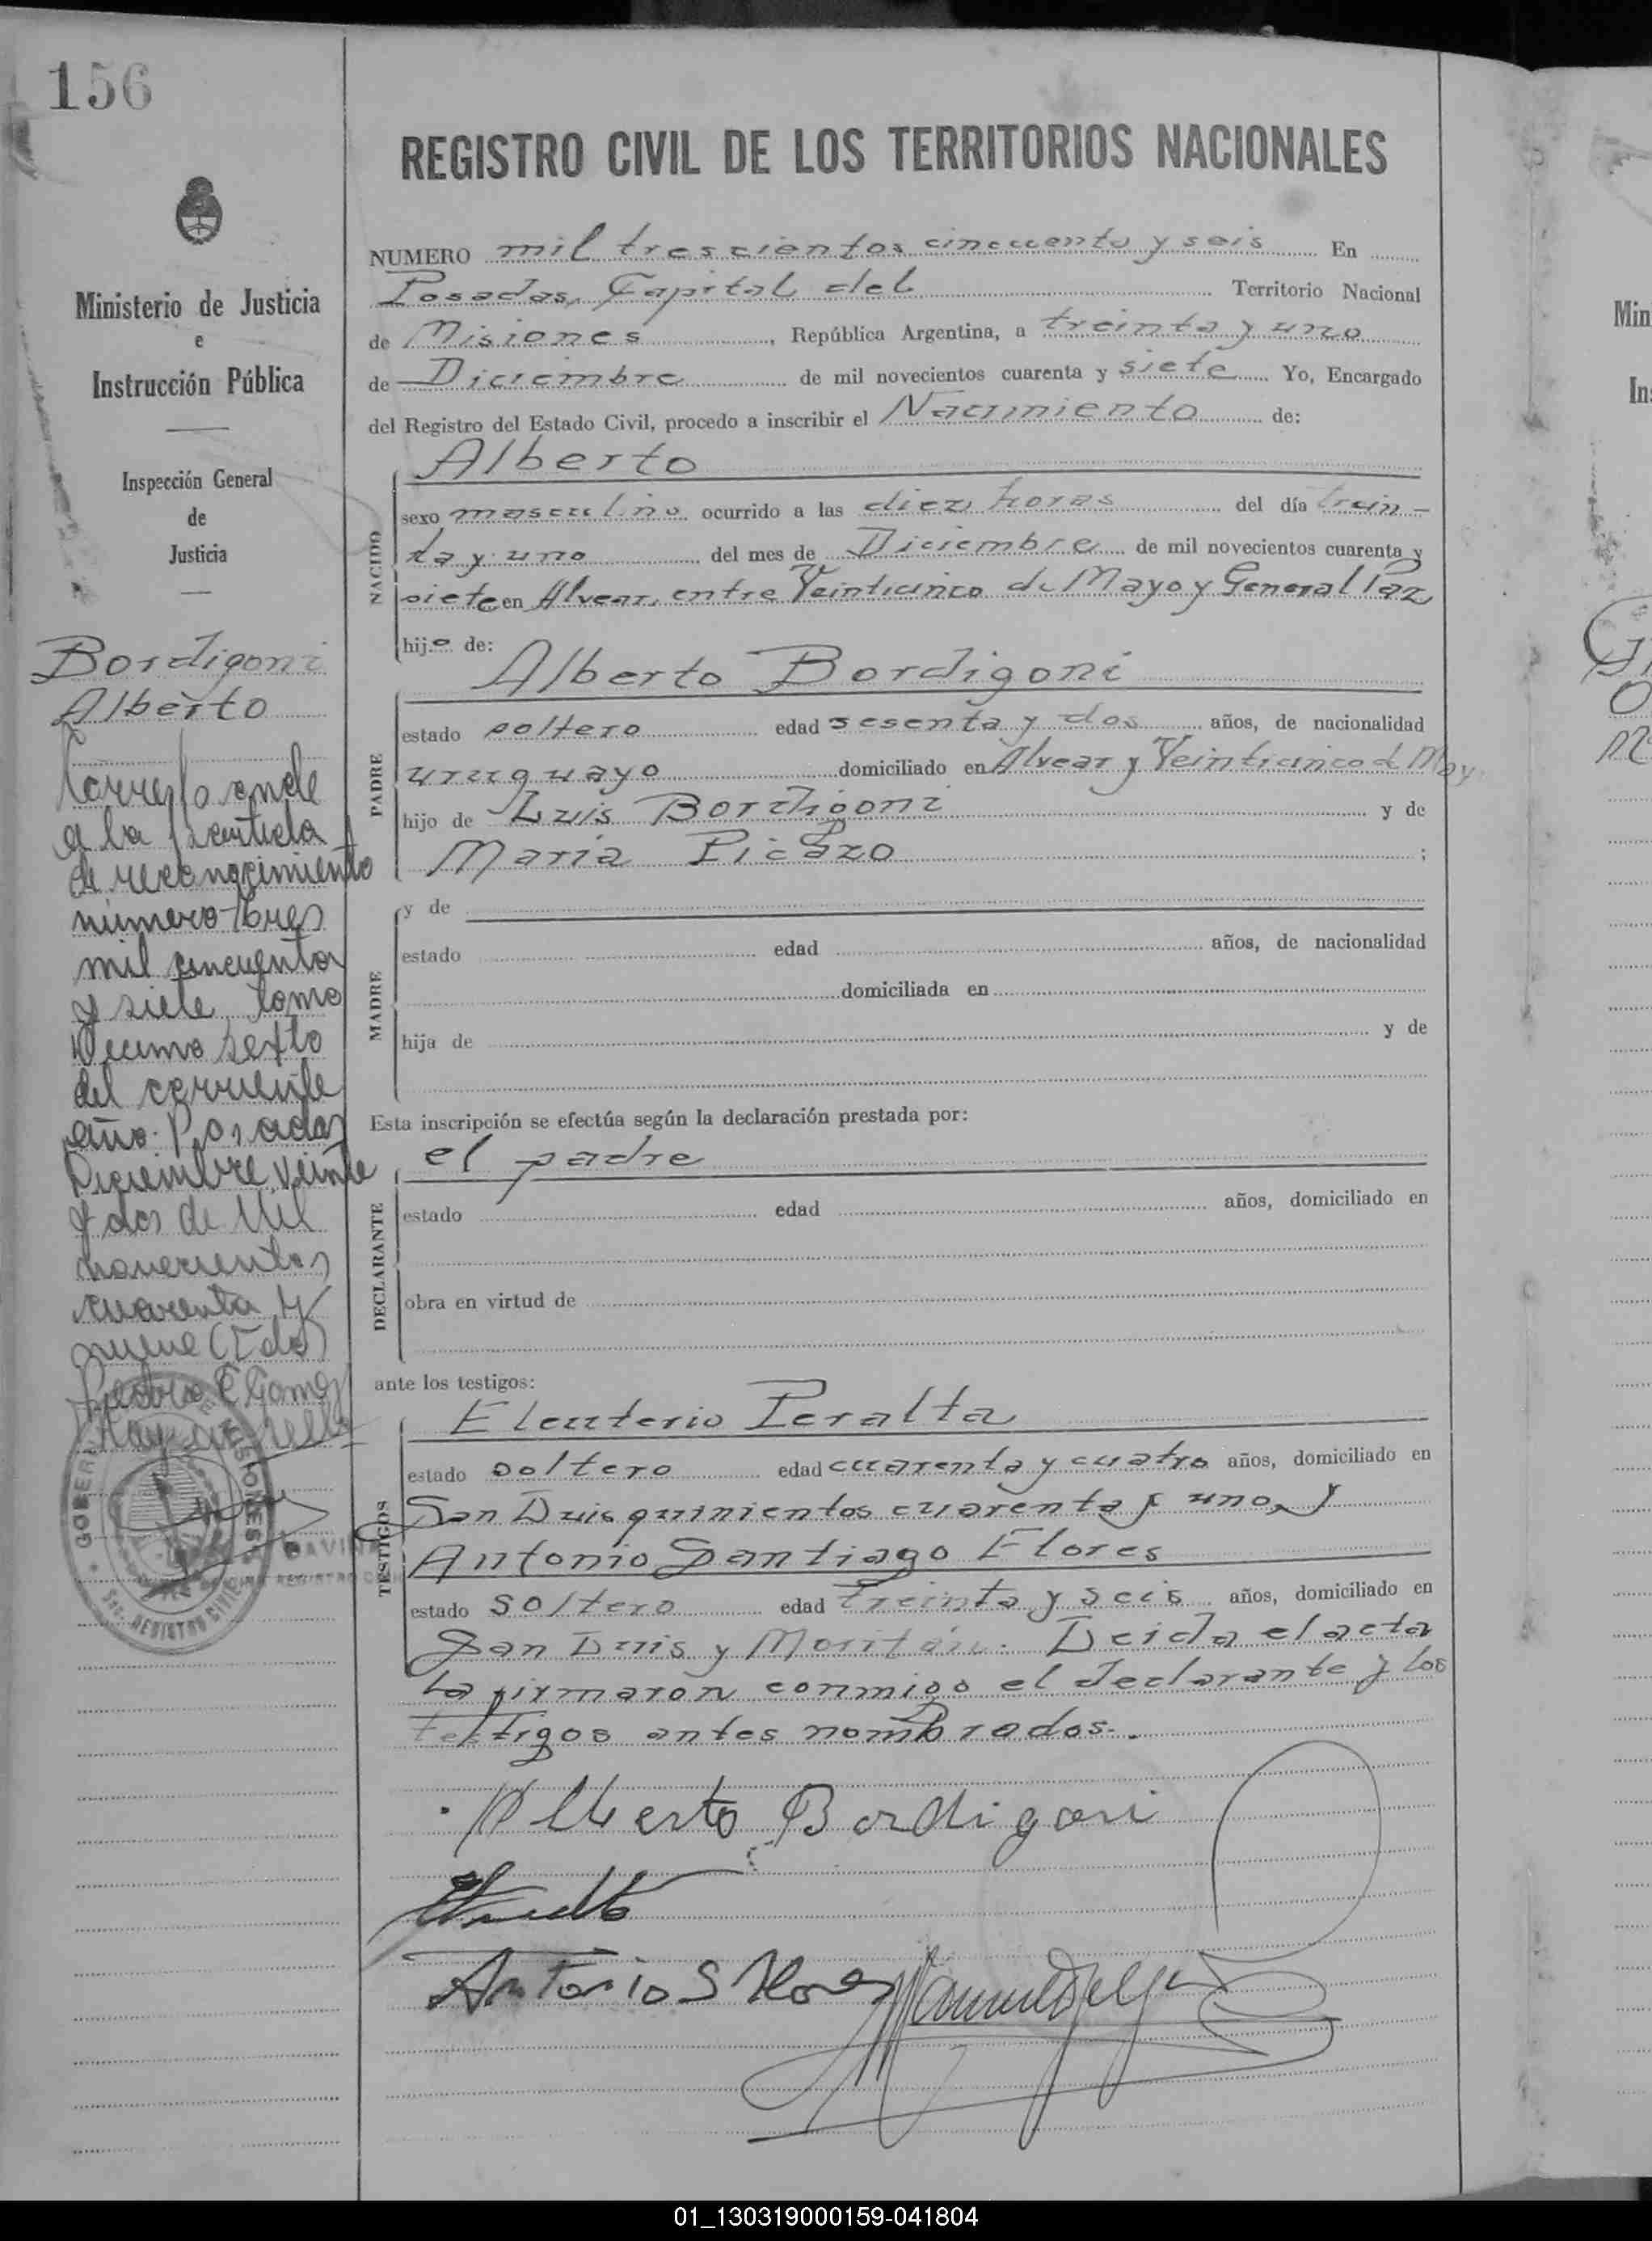 156
REGISTRO CIVIL DE LOS TERRITORIOS NACIONALES
Ministerio de Justicia
e
Instrucción Pública
Inspección General
de
Justicia
Bordigoni
Alberto
Corresponde
a la partida
de reconocimiento
número tres
mil cincuenta
y siete tomo
Decimo sexto
del corriente
año. Posadas
Diciembre veinte
y dos de Mil
novecientos
cuarenta y
nueve (Fdo)
Pedro C Gomez
Hay un sello
GOBER DE MISIONES
REGISTRO CIVIL
NUMERO mil trescientos cincuenta y seis En
Posadas, Capital del Territorio Nacional
de Misiones, República Argentina, a treinta y uno
de Diciembre de mil novecientos cuarenta y siete Yo, Encargado
del Registro del Estado Civil, procedo a inscribir el Nacimiento de:
NACIDO
Alberto
sexo masculino ocurrido a las diez horas del día trein-
ta y uno del mes de Diciembre de mil novecientos cuarenta y
siete en Alvear, entre Veinticinco de Mayo y General Paz
hijo de:
PADRE
Alberto Bordigoni
estado soltero edad sesenta y dos años, de nacionalidad
uruguayo domiciliado en Alvear y Veinticinco d May
hijo de Luis Bordigoni y de
Maria Picazo ;
MADRE
y de
estado edad años, de nacionalidad
domiciliada en
hija de y de
Esta inscripción se efectúa según la declaración prestada por:
DECLARANTE
el padre
estado edad años, domiciliado en
obra en virtud de
ante los testigos:
TESTIGOS
Eleuterio Peralta
estado soltero edad cuarenta y cuatro años, domiciliado en
San Luis quinientos cuarenta y uno, y
Antonio Santiago Flores
estado soltero edad treinta y seis años, domiciliado en
San Luis y . Leida el acta
la firmaron conmigo el declarante y los
testigos antes nombrados.
Alberto Bordigoni
Antonio S Flores
Min
01_130319000159-041804